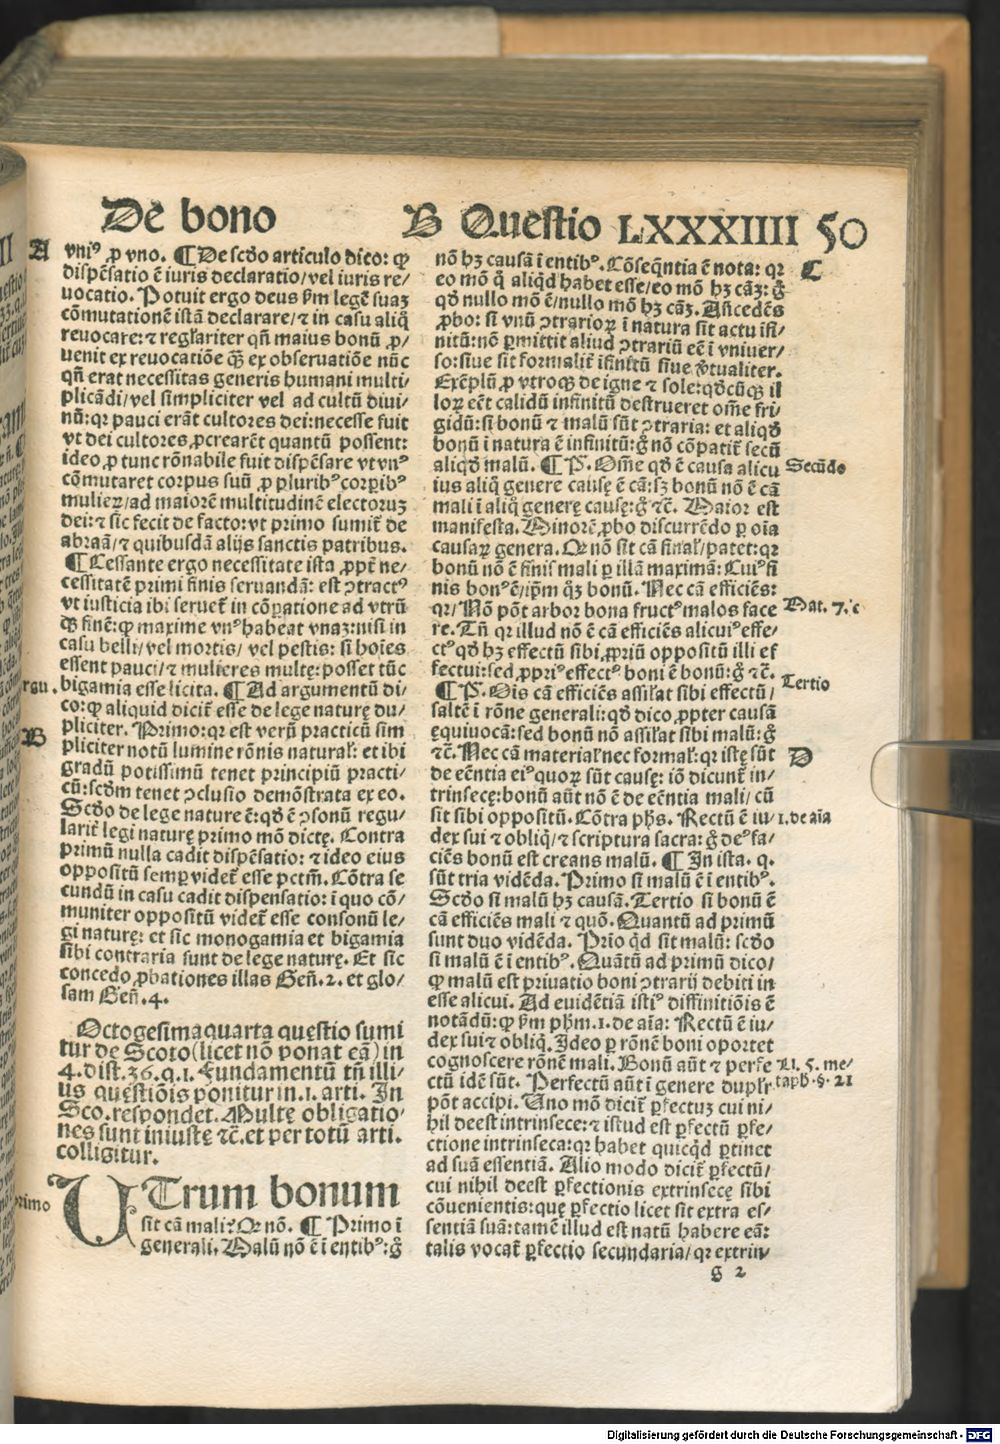 De bono
B Questio LXXXIIII 50
A
vniꝰ ꝓ vno. ¶ De scd̄o articulo dico: ꝙ
dispēsatio ē iuris declaratio/vel iuris re/
uocatio. Potuit ergo deus ẜm legē suaꝫ
cōmutationē istā declarare/⁊ in casu aliq̄
reuocare: ⁊ regl̄ariter qn̄ maius bonū ꝓ/
uenit ex reuocatiōe qꝫ̄ ex obseruatiōe nūc
qn̄ erat necessitas generis humani multi/
plicādi/vel simpliciter vel ad cultū diui/
nū: qꝛ pauci erāt cultores dei: necesse fuit
vt dei cultores ꝓcrearēt quantū possent:
ideo ꝓ tunc rōnabile fuit dispēsare vt vnꝰ
cōmutaret corpus suū ꝓ pluribꝰ corꝑibꝰ
mulieꝝ/ad maiorē multitudinē electoruꝫ
dei: ⁊ sic fecit de facto: vt primo sumit̄ de
abraā/⁊ quibusdā alijs sanctis patribus.
¶ Cessante ergo necessitate ista ꝓpt̄ ne/
cessitatē primi finis seruandā: est ↄtractꝰ
vt iusticia ibi seruet̄ in cōꝑatione ad vtrū
qꝫ finē: ꝙ maxime vnꝰ habeat vnaꝫ: nisi in
casu belli/vel mortis/vel pestis: si hoīes
essent pauci/⁊ mulieres multe: posset tūc
rgu.
bigamia esse licita. ¶ Ad argumentū di/
co: ꝙ aliquid dicit̄ esse de lege naturę du/
B
pliciter. Primo: qꝛ est verū practicū sim
pliciter notū lumine rōnis natural̄: et ibi
gradū potissimū tenet principiū practi/
cū: scd̄m tenet ↄclusio demōstrata ex eo.
Scd̄o de lege nature ē: qd̄ ē ↄsonū regu/
larit̄ legi naturę primo mō dictę. Contra
primū nulla cadit dispēsatio: ⁊ ideo eius
oppositū semꝑ videt̄ esse pctm̄. Cōtra se
cundū in casu cadit dispensatio: ī quo cō/
muniter oppositū videt̄ esse consonū le/
gi naturę: et sic monogamia et bigamia
sibi contraria sunt de lege naturę. Et sic
concedo ꝓbationes illas Geñ.2. et glo/
sam Geñ.4.
Octogesima quarta questio sumi
tur de Scoto (licet nō ponat eā) in
4. dist.36.q.1. Fundamentū tñ illi/
us questiōis ponitur in.1. arti. In
Sco.respondet. Multę obligatio/
nes sunt iniustę ⁊c̄. et per totū arti.
colligitur.
rimo
UTrum bonum
sit cā mali? Qꝛ nō. ¶ Primo ī
generali. Malū nō ē ī entibꝰ: g̊
nō hꝫ causā ī entibꝰ. Cōseq̄ntia ē nota: qꝛ
C
eo mō q̄ aliqd̄ habet esse/eo mō hꝫ cāꝫ: g̊
qd̄ nullo mō ē/nullo mō hꝫ cāꝫ. Añcedēs
ꝓbo: si vnū ↄtrarioꝝ ī natura sit actu īfi/
nitū: nō ꝑmittit aliud ↄtrariū eē ī vniuer/
so: siue sit formalit̄ īfinitū siue v̄tualiter.
Exēplū ꝓ vtroqꝫ de igne ⁊ sole: qd̄cūqꝫ il
loꝝ eēt calidū infinitū destrueret om̄e fri/
gidū: si bonū ⁊ malū sūt ↄtraria: et aliqd̄
bonū ī natura ē infinitū: g̊ nō cōpatit̄ secū
aliqd̄ malū. ¶ P̄. Om̄e qd̄ ē causa alicu
Secūdo
ius aliq̄ genere causę ē cā: sꝫ bonū nō ē cā
mali ī aliq̄ genere causę: g̊ ⁊c̄. Maior est
manifesta. Minorē ꝓbo discurrēdo ꝑ oīa
causaꝝ genera. Qꝛ nō sit cā final̄/patet: qꝛ
bonū nō ē finis mali ꝑ illā maximā: Cuiꝰ fi
nis bonꝰ ē/ip̄m qꝫ bonū. Nec cā efficiēs:
qꝛ/Nō pōt arbor bona fructꝰ malos face
Mat. 7. c
re. Tñ qꝛ illud nō ē cā efficiēs alicuiꝰ effe/
ctꝰ qd̄ hꝫ effectū sibi ꝓpriū oppositū illi ef
fectui: sed ꝓpriꝰ effectꝰ boni ē bonū: g̊ ⁊c̄.
Tertio
¶ P̄. Oīs cā efficiēs assil̄at sibi effectū/
saltē ī rōne generali: qd̄ dico ꝓpter causā
ęquiuocā: sed bonū nō assil̄at sibi malū: g̊
⁊c̄. Nec cā material̄ nec formal̄: qꝛ istę sūt
D
de eēntia eiꝰ quoꝝ sūt causę: iō dicunt̄ in/
trinsecę: bonū aūt nō ē de eēntia mali/cū
sit sibi oppositū. Cōtra ph̄s. Rectū ē iu/
1. de aīa
dex sui ⁊ obliq̄/⁊ scriptura sacra: g̊ deꝰ fa/
ciēs bonū est creans malū. ¶ In ista. q.
sūt tria vidēda. Primo si malū ē ī entibꝰ.
Scd̄o si malū hꝫ causā. Tertio si bonū ē
cā efficiēs mali ⁊ quō. Quantū ad primū
sunt duo vidēda. Prīo qd̄ sit malū: scd̄o
si malū ē ī entibꝰ. Quātū ad primū dico/
ꝙ malū est priuatio boni ↄtrarij debiti in
esse alicui. Ad euidētiā istiꝰ diffinitiōis ē
notādū: ꝙ ẜm ph̄m.1. de aīa: Rectū ē iu/
dex sui ⁊ obliq̄. Ideo ꝑ rōnē boni oportet
cognoscere rōnē mali. Bonū aūt ⁊ perfe
Li. 5. me/
ctū idē sūt. Perfectū aūt ī genere dupl̄r
taph̄. §. 21
pōt accipi. Uno mō dicit̄ ꝑfectuꝫ cui ni/
hil deest intrinsece: ⁊ istud est ꝑfectū ꝑfe/
ctione intrinseca: qꝛ habet quicqd̄ ꝑtinet
ad suā essentiā. Alio modo dicit̄ ꝑfectū/
cui nihil deest ꝑfectionis extrinsecę sibi
cōuenientis: que ꝑfectio licet sit extra es/
sentiā suā: tamē illud est natū habere eā:
talis vocat̄ ꝑfectio secundaria/qꝛ extrin/
g 2
Digitalisierung gefördert durch die Deutsche Forschungsgemeinschaft - DFG